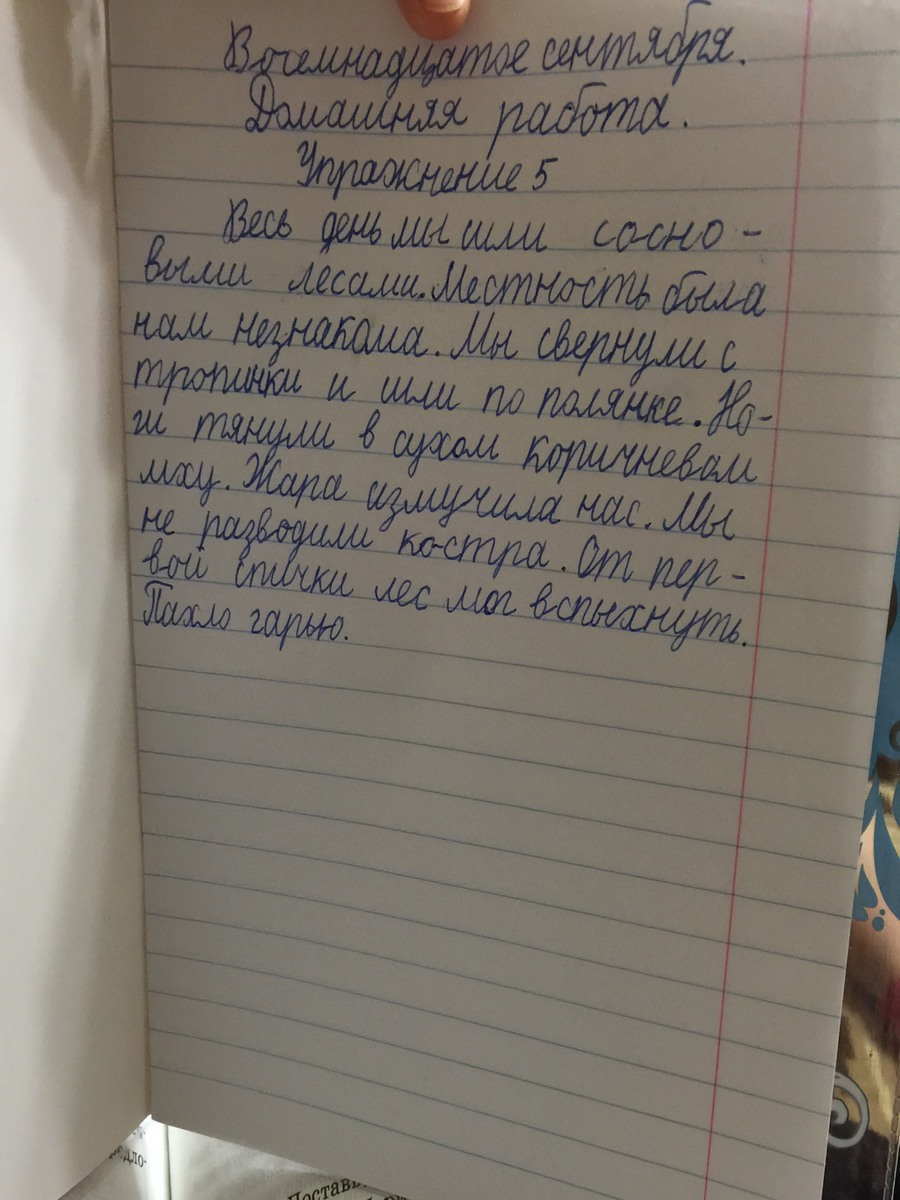 Восемнадцатое сентября.
Домашняя работа.
Упражнение 5
Весь день мы шли сосно-
выми лесами. Местность была
нам незнакома. Мы свернули с
тропинки и шли по полянке. Но-
ги тянули в сухом коричневом
мху. Жара измучила нас. Мы
не разводили костра. От пер-
вой спички лес мог вспыхнуть.
Пахло гарью.